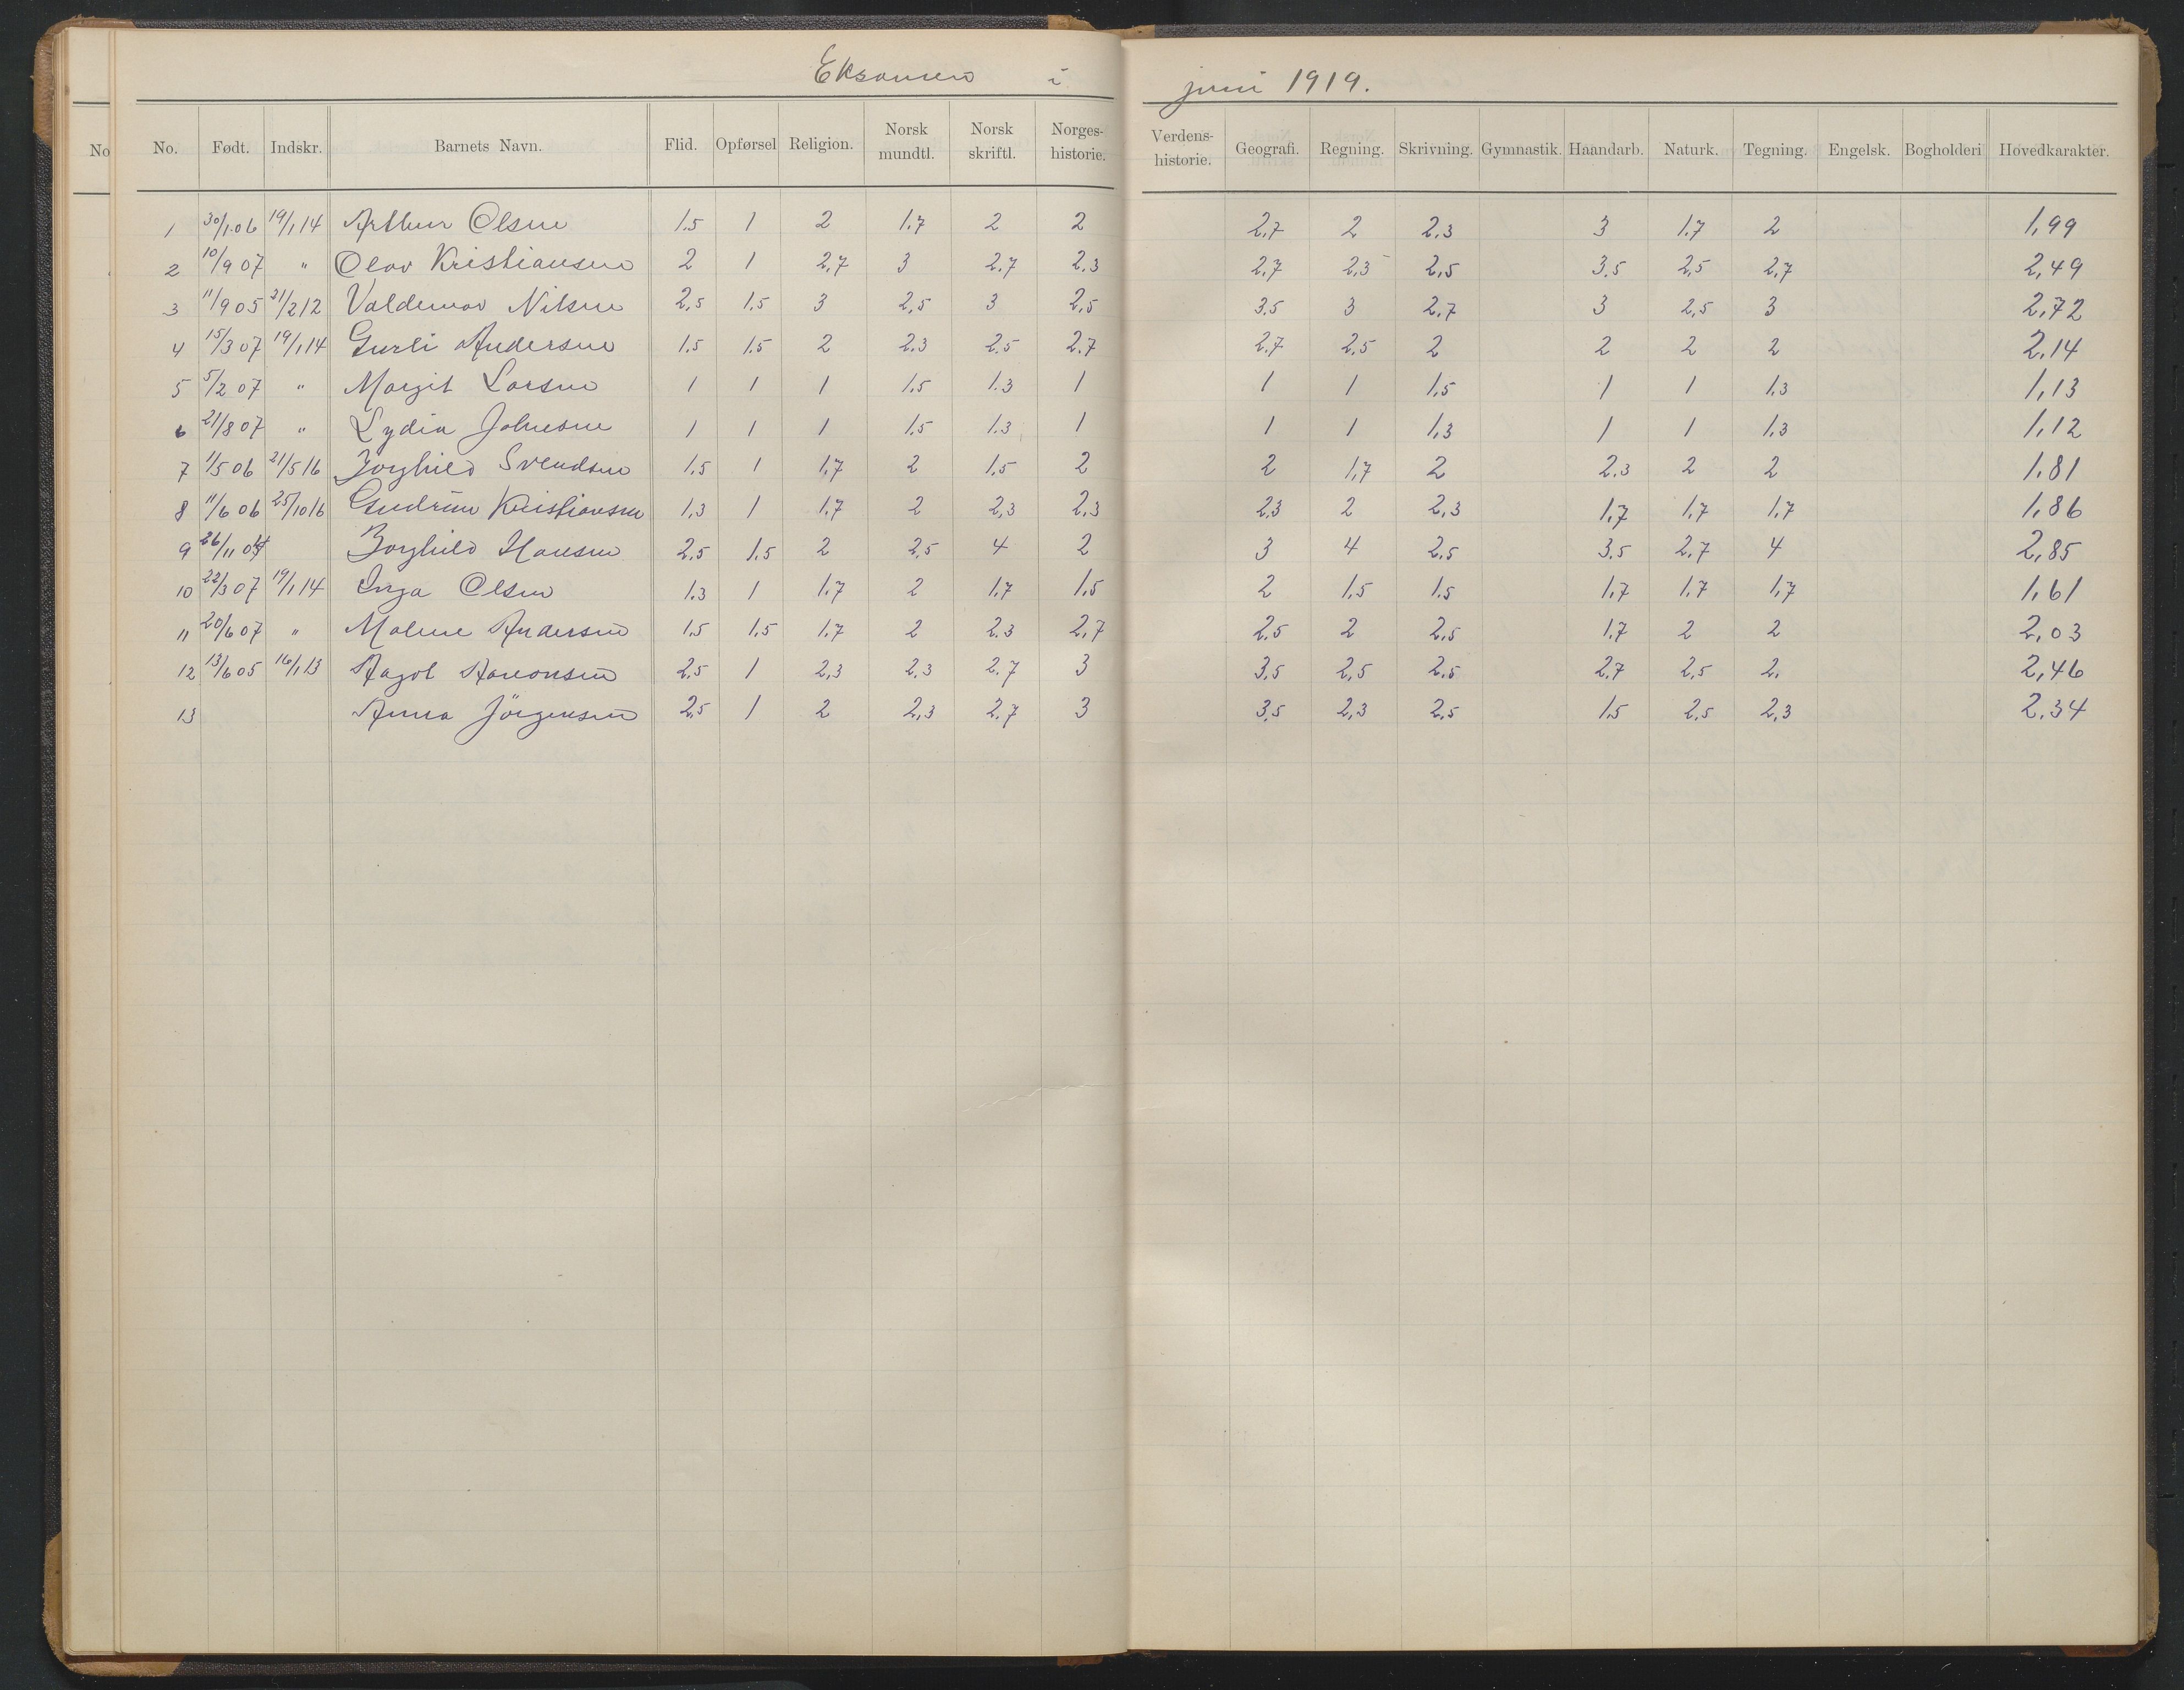 Eksamen i juni 1919.
No. No. Født. Indskr. Barnets Navn. Flid. Opførsel Religion. Norsk mundtl. Norsk skriftl. Norges-historie. Verdens-historie. Geografi. Regning. Skrivning. Gymnastik. Haandarb. Naturk. Tegning. Engelsk. Bogholderi Hovedkarakter.
1 30/1 06 19/1 14 Arthur Olsen 1.5 1 2 1.7 2 2 2,7 2 2.3 3 1.7 2 1,99
2 10/9 07 " Olav Kristiansen 2 1 2,7 3 2.7 2.3 2,7 2,3 2,5 3.5 2,5 2,7 2,49
3 11/9 05 21/2 12 Valdemar Nilsen 2,5 1.5 3 2,5 3 2,5 3.5 3 2.7 3 2,5 3 2,72
4 15/3 07 19/1 14 Gurli Andersen 1.5 1.5 2 2.3 2.5 2.7 2.7 2,5 2 2 2 2 2,14
5 5/2 07 " Margit Larsen 1 1 1 1.5 1.3 1 1 1 1,5 1 1 1.3 1,13
6 21/8 07 " Lydia Johnsen 1 1 1 1.5 1.3 1 1 1 1,3 1 1 1.3 1,12
7 1/5 06 21/5 16 Borghild Svendsen 1.5 1 1,7 2 1.5 2 2 1,7 2 2.3 2 2 1.81
8 11/6 06 25/10 16 Gudrun Kristiansen 1,3 1 1.7 2 2,3 2.3 2.3 2 2,3 1,7 1,7 1,7 1,86
9 26/11 Borghild Hansen 2,5 1,5 2 2,5 4 2 3 4 2,5 3,5 2,7 4 2,85
10 22/3 07 19/1 14 Inga Olsen 1.3 1 1,7 2 1,7 1,5 2 1,5 1.5 1,7 1,7 1,7 1,61
11 20/6 07 " Malene Andersen 1.5 1.5 1.7 2 2.3 2,7 2,5 2 2,5 1.7 2 2 2,03
12 13/6 05 16/1 13 Aagot Aaronsen 2,5 1 2,3 2,3 2.7 3 3,5 2,5 2.5 2.7 2,5 2. 2,46
13 Anna Jörgensen 2,5 1 2 2,3 2.7 3 3,5 2,3 2,5 1.5 2,5 2,3 2.34